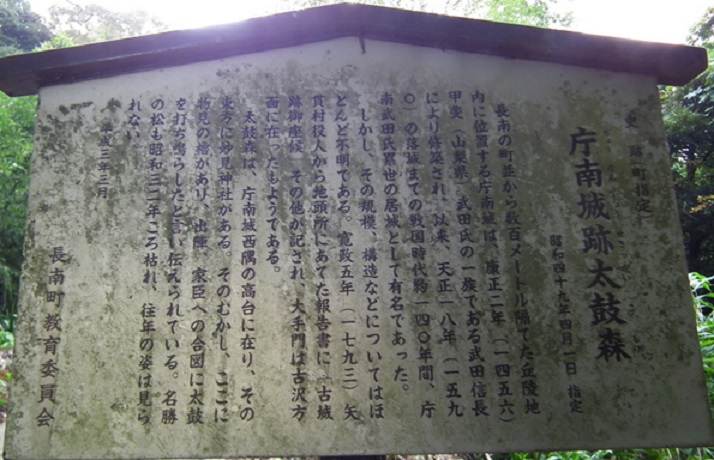 史跡(町指定)
庁南城跡太鼓森
昭和四十九年四月一日 指定
長南の町並から数百メートル隔てた丘陵地
内に位置する庁南城は、康正二年(一四五六)
甲斐(山梨県)武田氏の一族である武田信長
により修築され、以来、天正一八年(一五九
〇)の落城までの戦国時代約一四〇年間、庁
南武田氏累世の居城として有名であった。
しかし、その規模、構造などについてはほ
とんど不明である。寛政五年(一七九三)矢
貫村役人から地頭所にあてた報告書に「古城
跡御座候」その他が記され、大手門は古沢方
面に在ったもようである。
太鼓森は、庁南城西隅の高台に在り、その
東方に妙見神社がある。そのむかし、ここに
物見の櫓があり、出陣、家臣への合図に太鼓
を打ち鳴らしたと言い伝えられている。名勝
の松も昭和三二年ころ枯れ、往年の姿は見ら
れない。
平成三年三月
長南町教育委員会